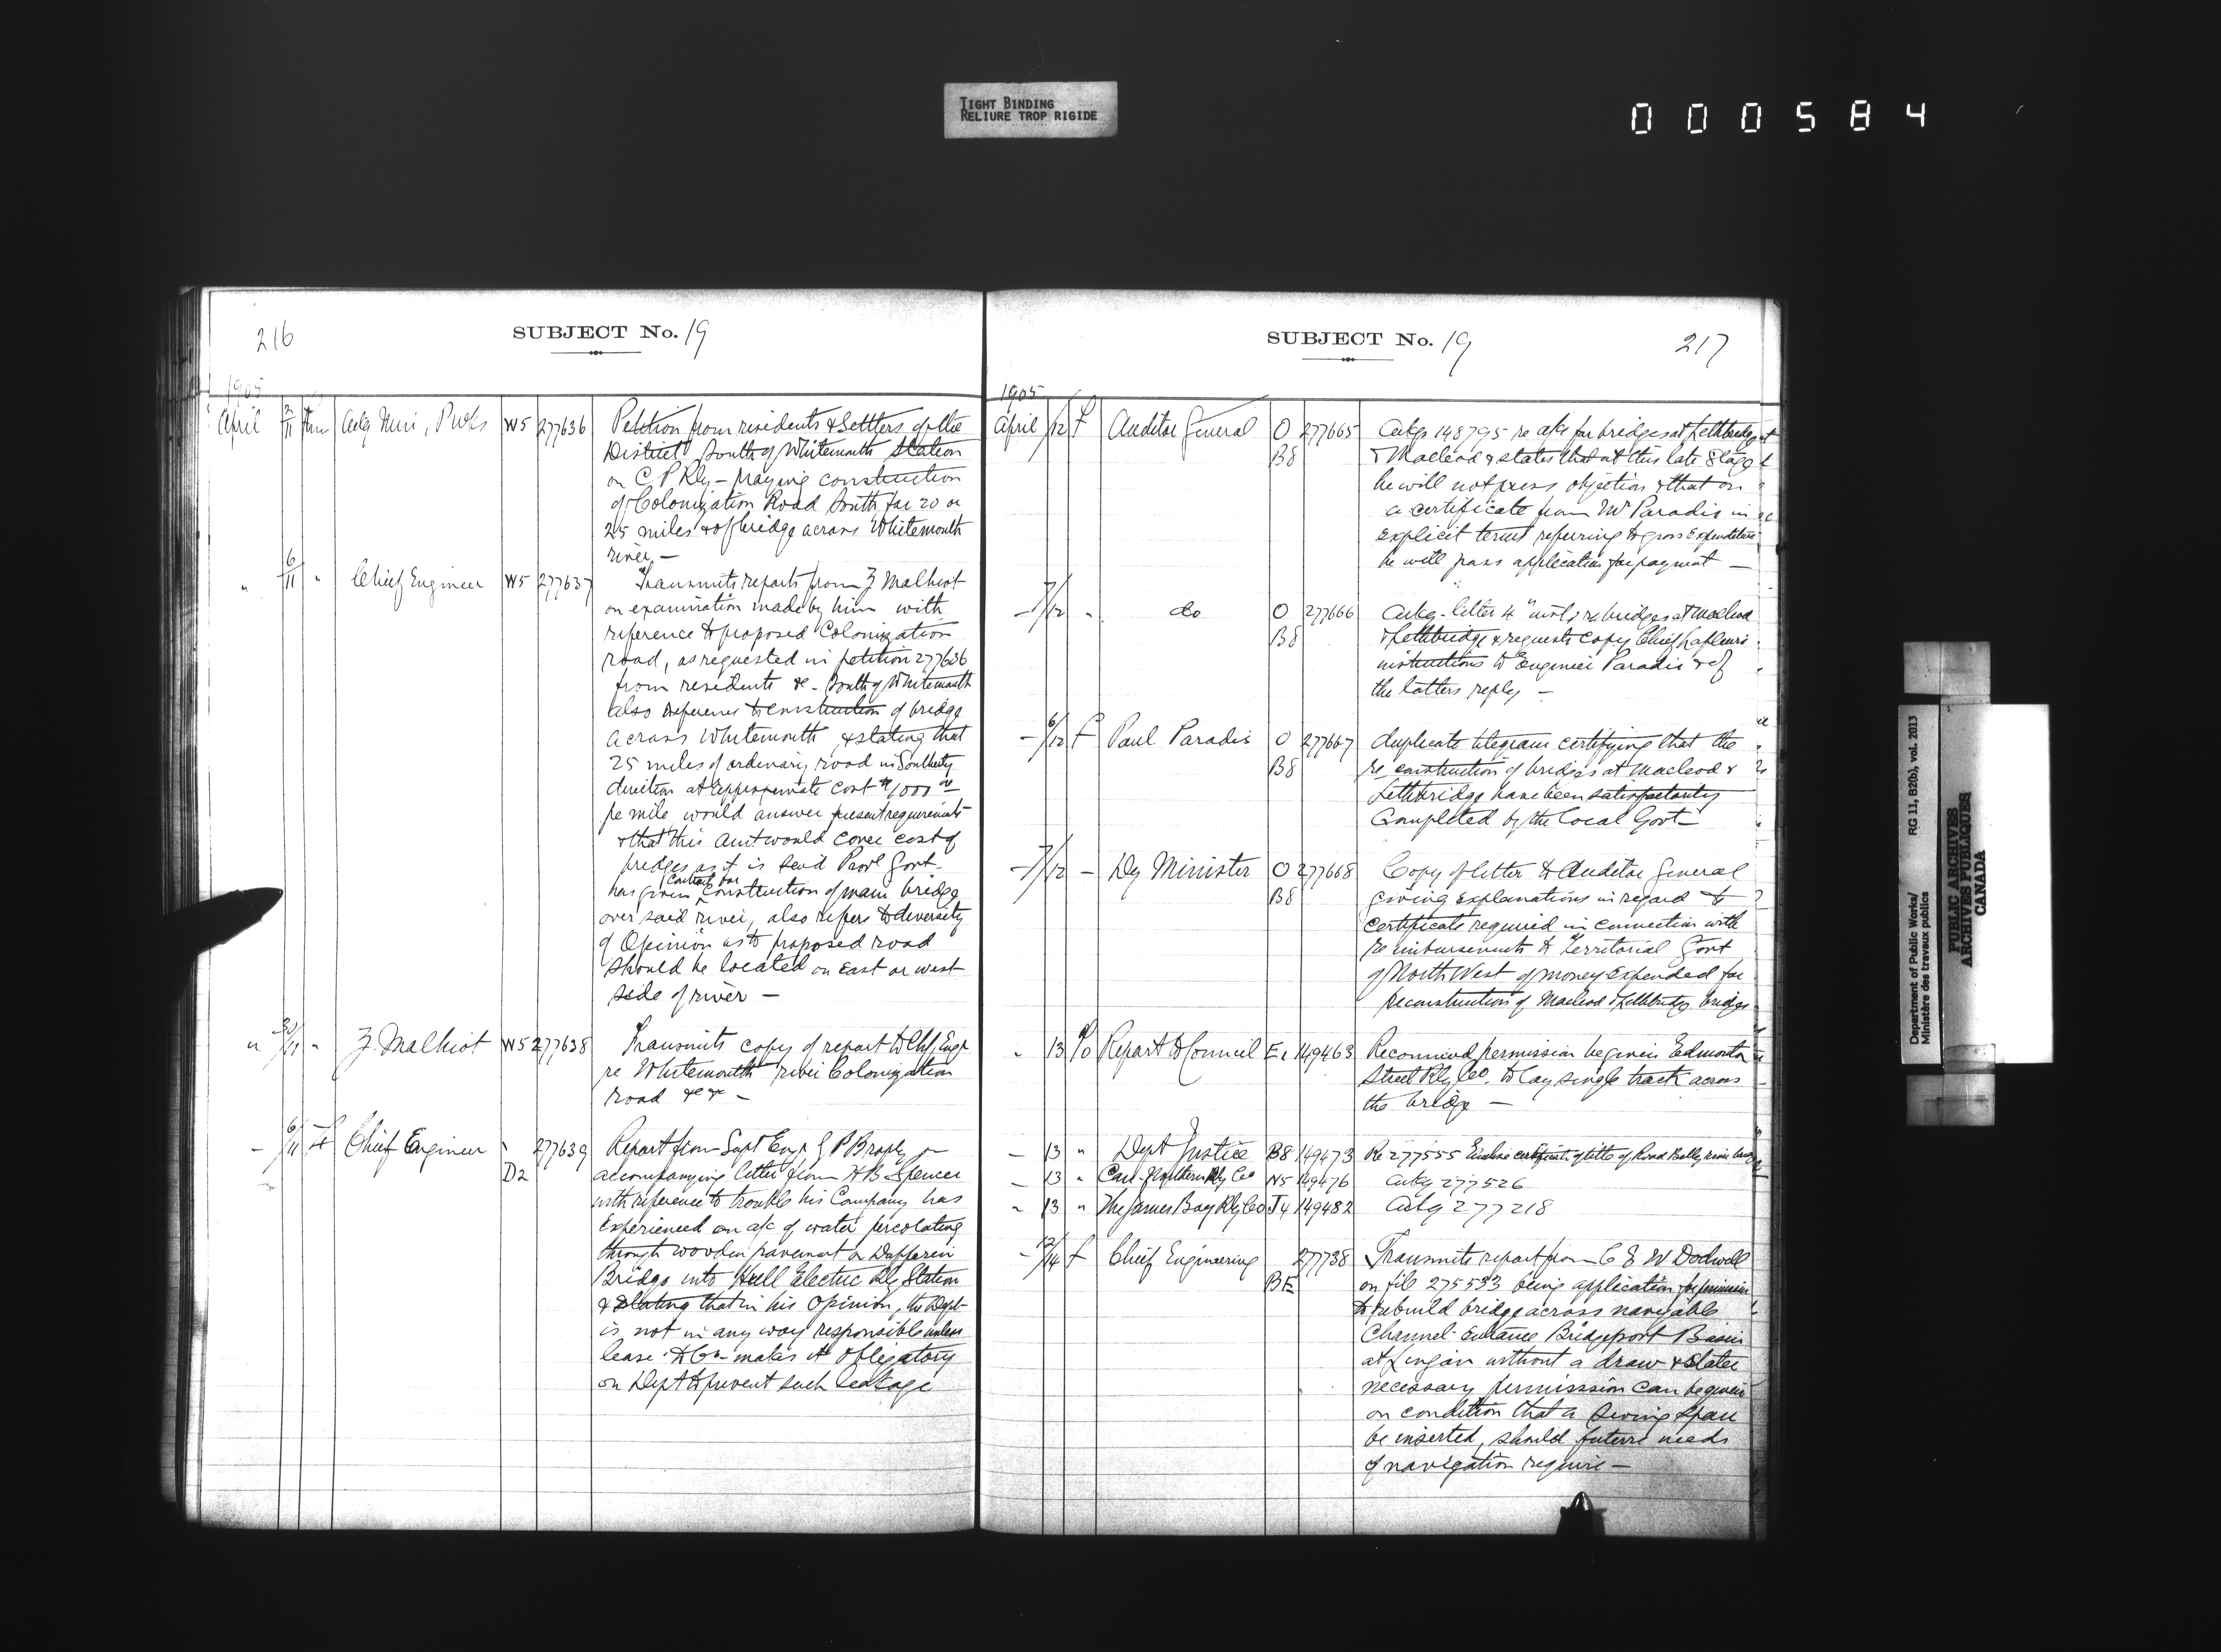 TIGHT BINDING
RELIURE TROP RIGIDE
000584
216
SUBJECT No. 19
1905
April 2/11 Actg Mini, PWks W5 277636 Petition from residents & Settlers of the
District South of Whitemouth Station
on C P Rly – praying construction
of Colonization Road South for 20 or
25 miles & of bridge across Whitemouth
river –
" 6/11 " Chief Engineer W5 277637 Transmits reports from Z Malhiot
on examination made by him with
reference to proposed Colonization
road, as requested in petition 277636
from residents &c. South of Whitemouth
also reference to construction of bridge
across Whitemouth & stating that
25 miles of ordinary road in Southerly
direction at approximate cost $1000 00
pe mile would answer present requirements
& that this Amt would cover cost of
bridges as it is said Prov'l Govt
has given contract for construction of main bridge
over said river, also refers to diversity
of Opinion as to proposed road
should be located on East or West
side of river –
" 30/11 " Z. Malhiot W5 277638 Transmits copy of report to Chf, Engr
re Whitemouth river Colonization
road &c &c –
– 6/11 Chief Engineer D2 277639 Report from Supt Engr G P Brophy on
accompanying letter from H B Spencer
with reference to trouble his Company has
experienced on a/c of water percolating
through wooden pavement on Dufferin
Bridge into Hull Electric Rly Station
& stating that in his Opinion, the Dept
is not in any way responsible unless
lease to Co– makes it obligatory
on Dept to prevent such leakage
SUBJECT No. 19
217
1905
April /12 f Auditor General O B8 277665 Ackgs 148795 re a/c for bridges at Lethbridge
& Macleod & states that at this late Stage
he will not press objection & that on
a certificate from Mr Paradis in
explicit terms referring to gross Expenditure
he will pass application for payment –
– 7/12 " do O B8 277666 Ackg. letter 4" inst, re bridges at Macleod
& Lethbridge & requests copy Chief Lafleurs
instructions to Engineer Paradis & of
the latters reply –
– 6/12 f Paul Paradis O B8 277667 duplicate telegram certifying that the
re construction of bridges at Macleod &
Lethbridge have been satisfactorily
Completed by the Local Govt –
– 7/12 – Dy Minister O B8 277668 Copy of letter to Auditor General
giving Explanations in regard to
certificate required in connection with
re imbursements to Territorial Govt
of North West of money Expended for
reconstruction of Macleod & Lethbridge bridge
" 13 % Report to Council E1 149463 Recommend permission be given Edmonton
Street Rly Co. to lay single track across
the bridge –
– 13 " Dept Justice B8 149473 Re 277555 Enclose certificate of title of Road Belly river
– 13 " Can. Northern Rly Co N5 149476 Ackg 277526
" 13 " The James Bay Rly Co J4 149482 Ackg 277218
– 12/14 f Chief Engineering BE 277738 Transmits report from C E W Dodwell
on file 275533 being application for permission
to rebuild bridge across navigable
Channel - Entrance Bridgeport Basin
at Lingan without a draw & states
necessary permisssion can be given
on condition that a swing span
be inserted, should future needs
of navigation require –
Department of Public Works/ RG 11, B2(b), vol. 2013
Ministère des travaux publics
PUBLIC ARCHIVES
ARCHIVES PUBLIQUES
CANADA